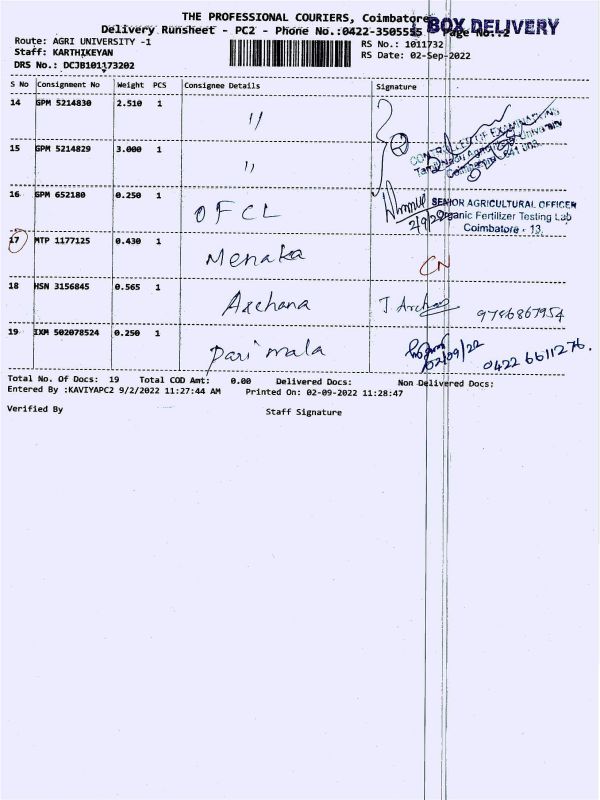 THE PROFESSIONAL COURIERS, Coimbatore
BOX DELIVERY
Delivery Runsheet - PC2 - Phone No.:0422-3505555 Page No.:2
Route: AGRI UNIVERSITY -1
RS No.: 1011732
Staff: KARTHIKEYAN
RS Date: 02-Sep-2022
DRS No.: DCJB101173202
S No Consignment No Weight PCS Consignee Details Signature
14 GPM 5214830 2.510 1 "
15 GPM 5214829 3.000 1 "
2
CONTROLLER OF EXAMINATIONS
Tamil Nadu Agricultural University
Coimbatore - 641 003
16 GPM 652180 0.250 1 OFCL
2/9/22
SENIOR AGRICULTURAL OFFICER
Organic Fertilizer Testing Lab
Coimbatore - 13.
17 MTP 1177125 0.430 1 Menaka CN
18 HSN 3156845 0.565 1 Archana J Archana
19 IXM 502078524 0.250 1 Parimala 02/09/22 0422 6611276.
Total No. Of Docs: 19 Total COD Amt: 0.00 Delivered Docs: Non Delivered Docs:
Entered By :KAVIYAPC2 9/2/2022 11:27:44 AM Printed On: 02-09-2022 11:28:47
Verified By Staff Signature